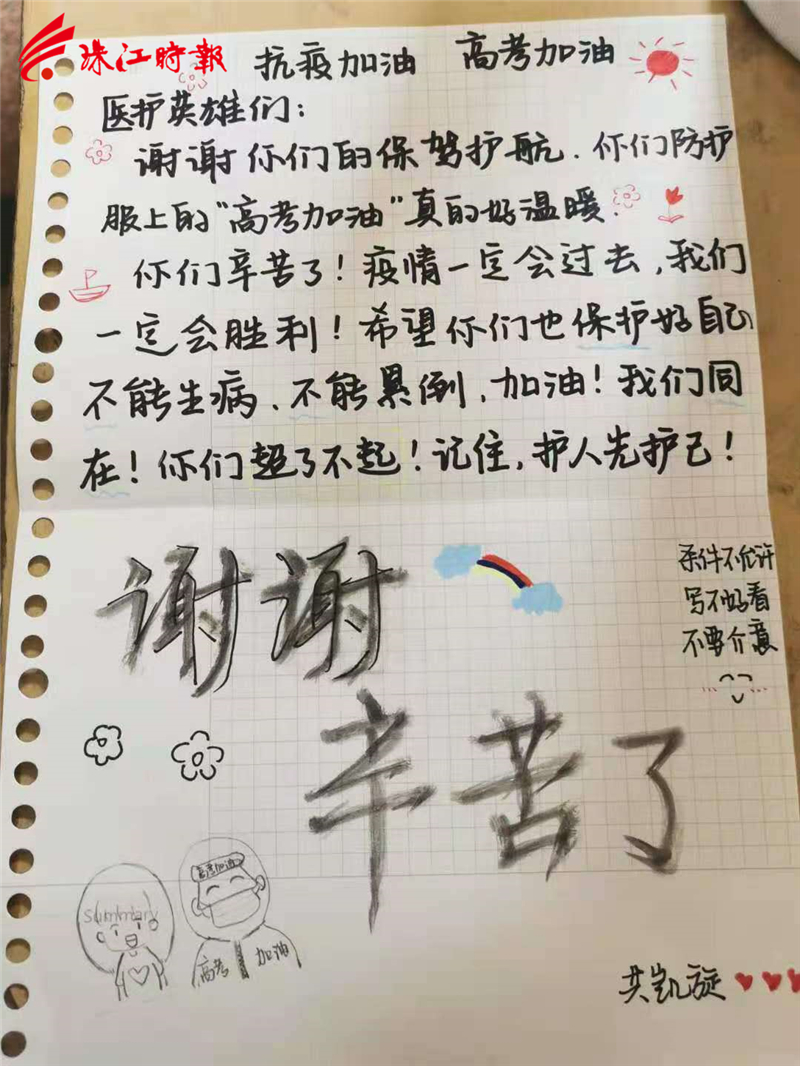 珠江时报
抗疫加油 高考加油
医护英雄们：
谢谢你们的保驾护航．你们防护
服上的“高考加油”真的好温暖．
你们辛苦了！疫情一定会过去，我们
一定会胜利！希望你们也保护好自己
不能生病、不能累倒，加油！我们同
在！你们超了不起！记住，护人先护己！
谢谢
条件不允许
写不好看
不要介意
辛苦了
高考加油
summary
高考 加油
共凯旋